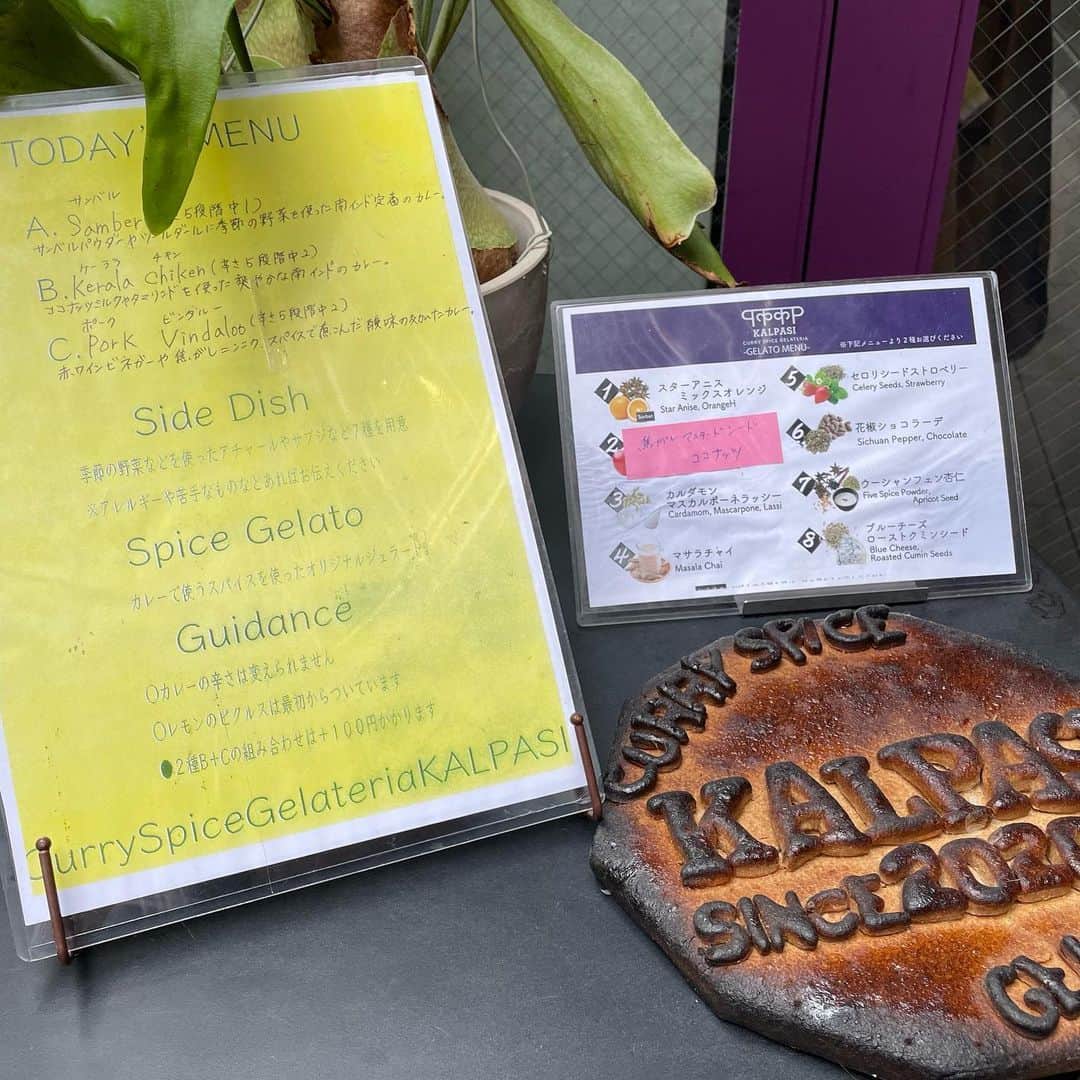 TODAY' MENU
サンバル
A. Samber 5段階中1)
サンバルパウダーやツールダールに季節の野菜を使った南インド定番のカレー。
ケーララ チキン
B. Kerala Chiken (辛さ5段階中2)
ココナッツミルクやタマリンドを使った爽やかな南インドのカレー。
ポーク ビンダルー
C. Pork Vindaloo (辛さ5段階中2)
赤ワインビネガーや焦がしニンニク、スパイスで煮こんだ酸味の効いたカレー。
Side Dish
季節の野菜などを使ったアチャールやサブジなど7種を用意
※アレルギーや苦手なものなどあればお伝えください
Spice Gelato
カレーで使うスパイスを使ったオリジナルジェラート
Guidance
○カレーの辛さは変えられません
○レモンのピクルスは最初からついています
●2種B+Cの組み合わせは+100円かかります
CurrySpiceGelateriaKALPASI
KALPASI
CURRY SPICE GELATERIA
-GELATO MENU-
※下記メニューより2種お選びください
1 スターアニス
ミックスオレンジ
Star Anise, OrangeH
Sorbet
2 焦がしマスタードシード
ココナッツ
3 カルダモン
マスカルポーネラッシー
Cardamom, Mascarpone, Lassi
4 マサラチャイ
Masala Chai
5 セロリシードストロベリー
Celery Seeds, Strawberry
6 花椒ショコラーデ
Sichuan Pepper, Chocolate
7 ウーシャンフェン杏仁
Five Spice Powder,
Apricot Seed
8 ブルーチーズ
ローストクミンシード
Blue Cheese,
Roasted Cumin Seeds
CURRY SPICE
KALPAS
SINCE2020